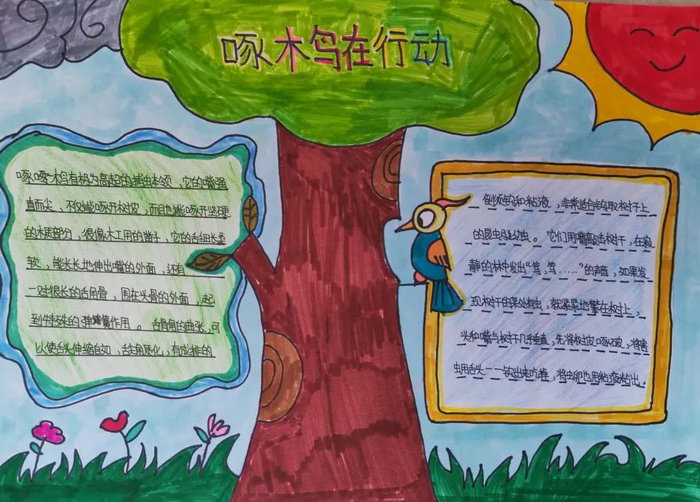 啄木鸟在行动
啄木鸟有极为高超的捕虫本领，它的嘴强
直而尖，不仅能啄开树皮，而且也能啄开坚硬
的木质部分，很像木工用的凿子，它的舌细长且
软，能长长地伸出嘴的外面，还有
一对很长的舌角骨，围在头骨的外面，起
到特殊的弹簧作用。舌骨角的曲张，可
以使舌头伸缩自如，舌尖角质化，有成排的
倒须钩和粘液，非常适合钩取树干上
的昆虫和幼虫。它们用嘴敲击树干，在寂
静的林中发出“笃，笃……”的声音，如果发
现树干的某处有虫，就紧紧地攀在树上，
头和嘴与树干几乎垂直，先将树皮啄破，将害
虫用舌头一一钩出来吃掉，将虫卵也用粘液粘出。